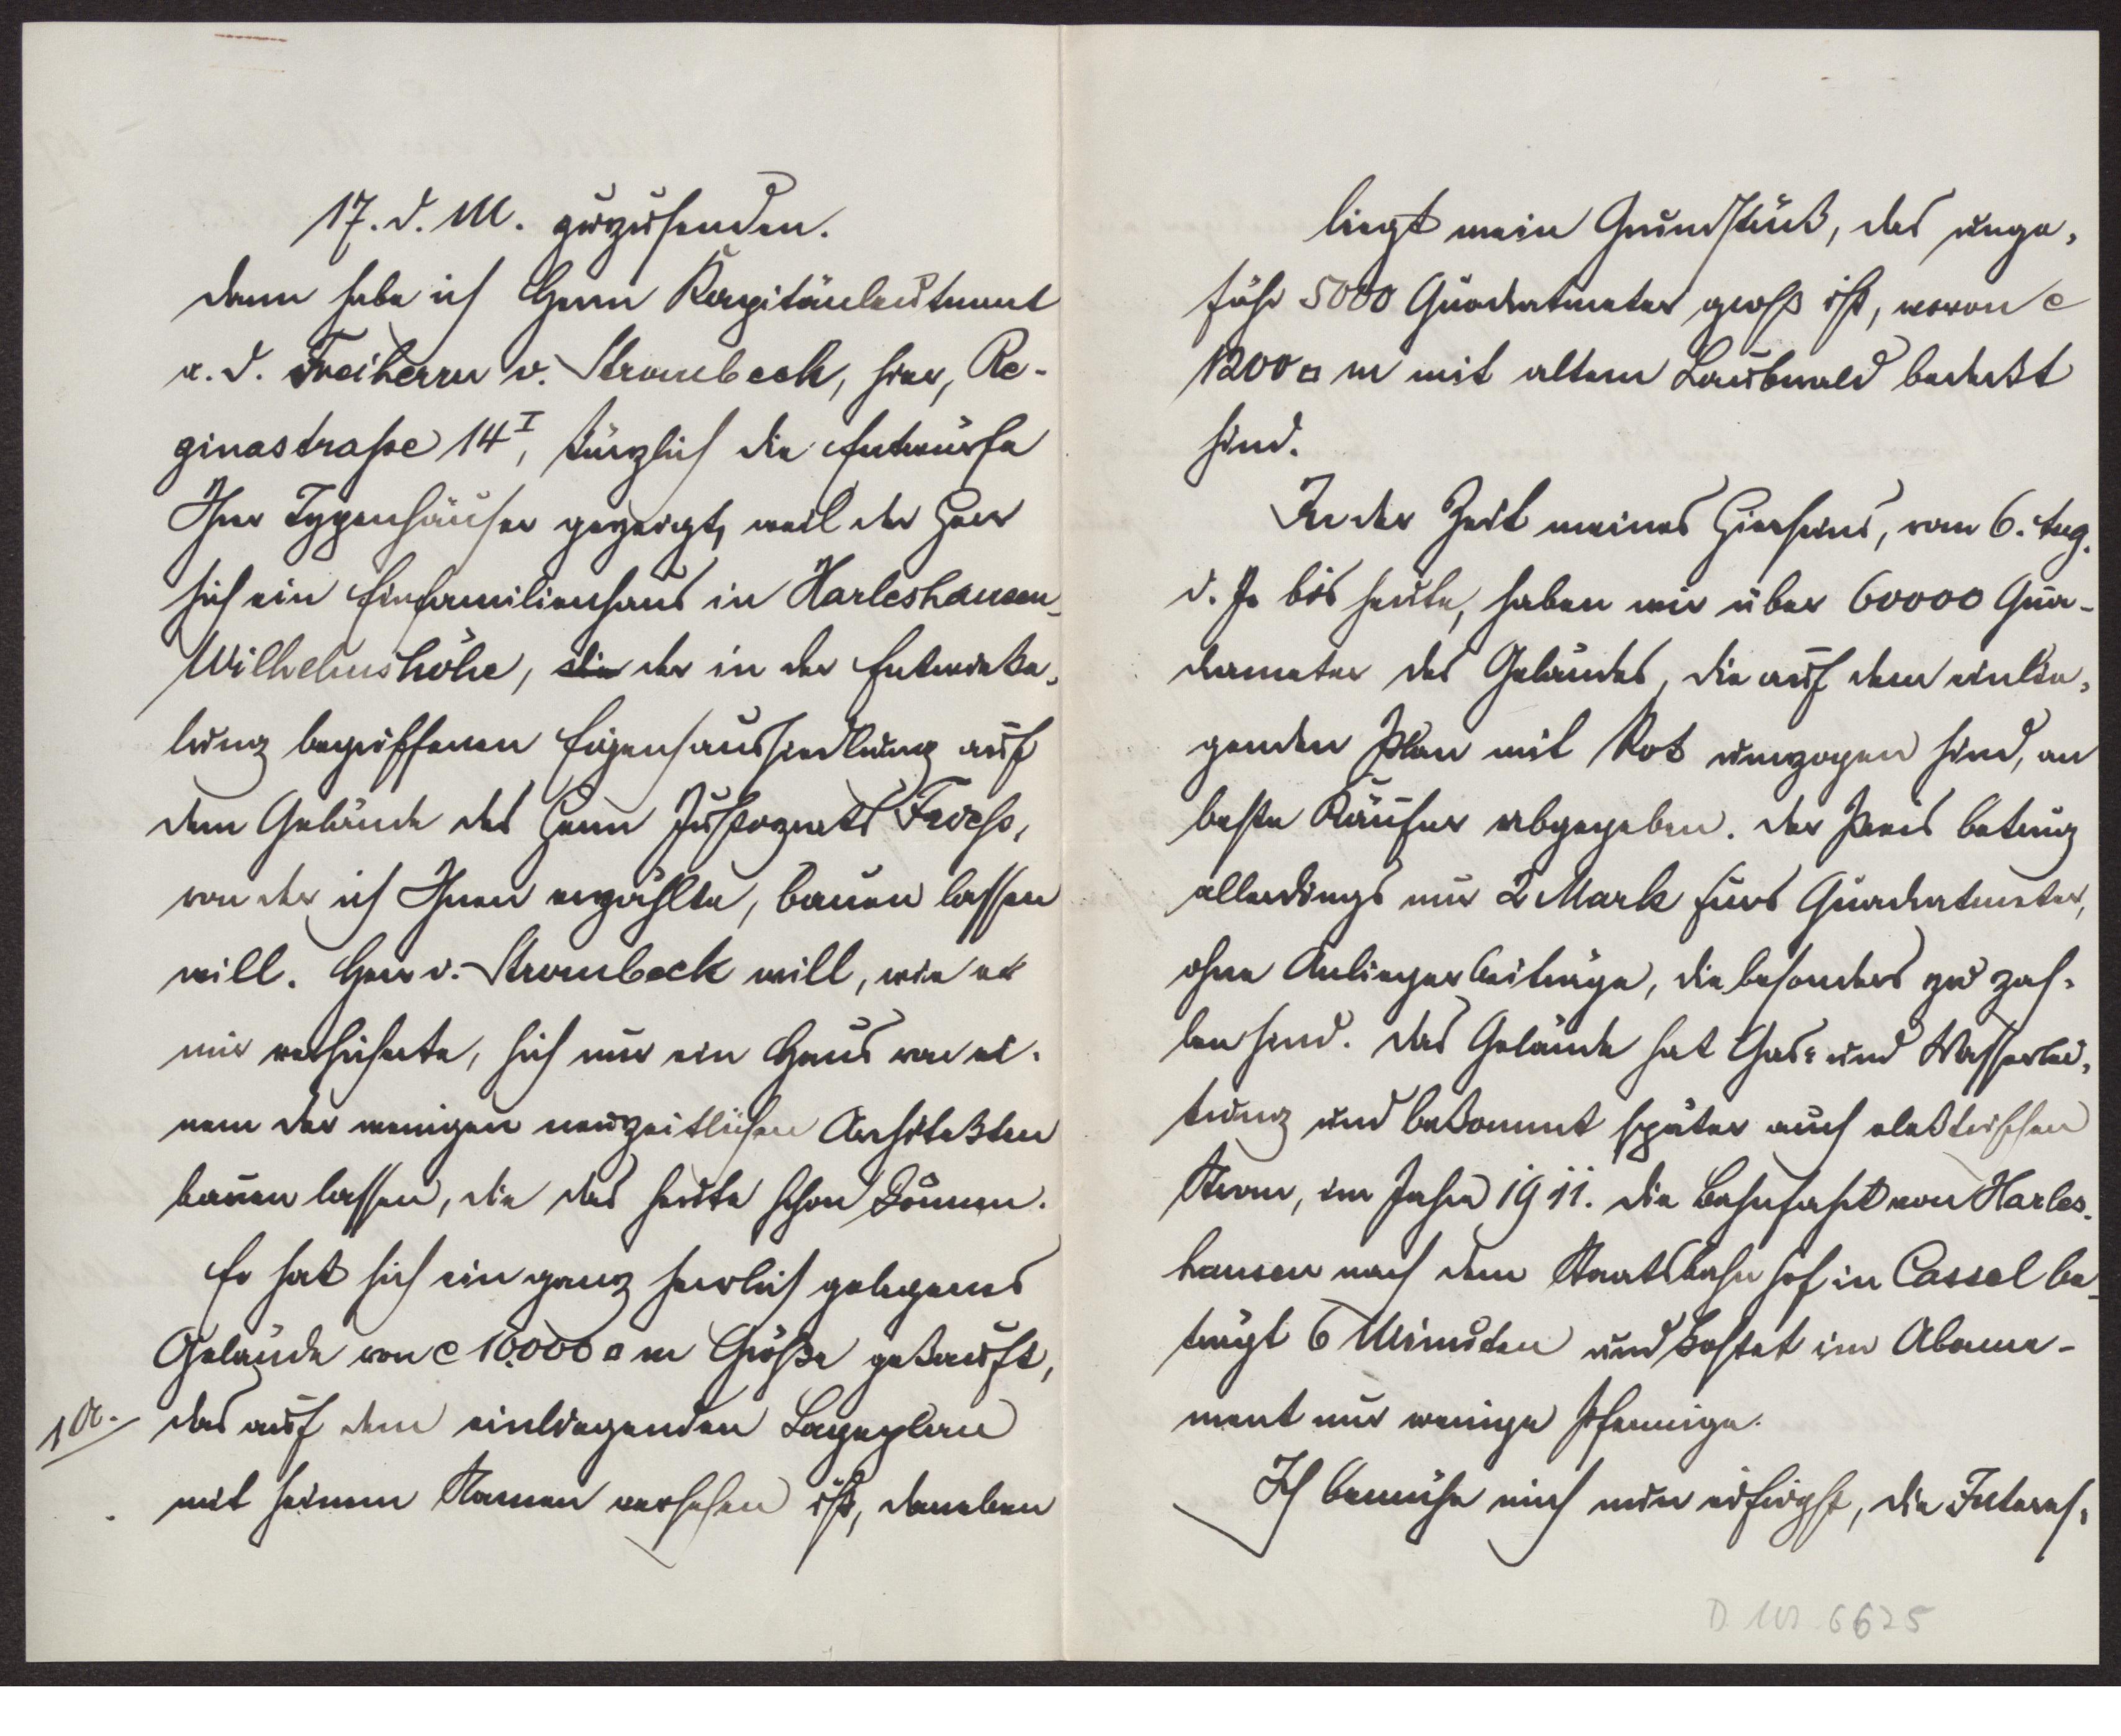 17. d. M. zuzusenden.
Dann habe ich Herrn Kapitänleutnant
a. D. Freiherrn v. Strombeck, hier, Re-
ginastraße 14 I, kürzlich die Entwürfe
Ihrer Typenhäuser gezeigt, weil der Herr
sich ein Einfamilienhaus in Harleshausen-
Wilhelmshöhe, die der in der Entwicke-
lung begriffenen Eigenhaussiedlung auf
dem Gelände des Herrn Justizrats
von der ich Ihnen erzählte, bauen lassen
will. Herr v. Strombeck will, wie er
mir versicherte, sich nur ein Haus von ei-
nem der wenigen neuzeitlichen Architekten
bauen lassen, die das heute schon können.
Er hat sich ein ganz herrlich gelegenes
Gelände von c 10.000 □ m Größe gekauft,
das auf dem einliegenden Lageplan
mit seinem Namen versehen ist, daneben
liegt mein Grundstück, das unge-
fähr 5000 Quadratmeter groß ist, wovon c
1200 □ m mit altem Laubwald bedeckt
sind.
In der Zeit meines Hierseins, vom 6. Aug.
d. J. bis heute, haben wir über 60000 Qua-
dermeter des Geländes, die auf dem einlie-
genden Plan mit Rot umzogen sind, an
beste Käufer abgegeben. Der Preis betrug
allerdings nur 2 Mark fürs Quadratmeter,
ohne Anliegerbeiträge, die besonders zu zah-
len sind. Das Gelände hat Gas- und Wasserlei-
tung und bekommt später auch elektrischen
Strom, im Jahre 1911. Die Bahnfahrt von Harles-
hausen nach dem Staatsbahnhof in Cassel be-
trägt 6 Minuten und kostet im Abonne-
ment nur wenige Pfennige.
Ich bemühe mich nun eifrigst, die Interes-
D WB 6625